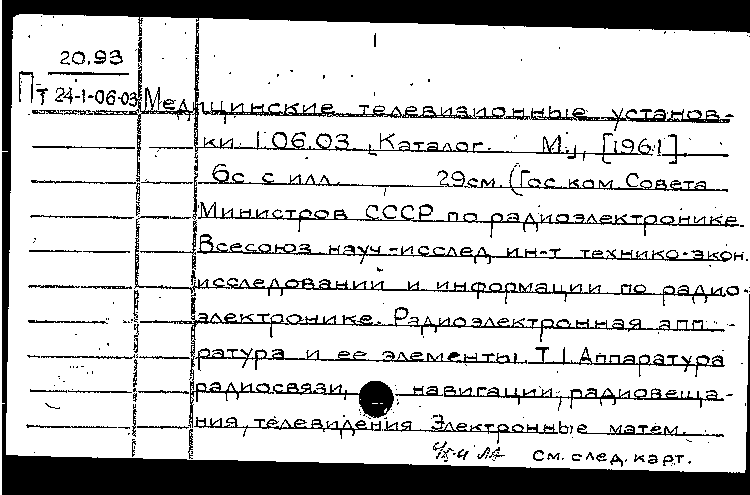 20.93
Пт 24-1-06-03 Медицинские телевизионные установ-
ки. 1.06.03. Каталог. М., [1961].
6с. с илл. 29см. (Гос. ком. Совета
Министров СССР по радиоэлектронике.
Всесоюз науч.-исслед. ин-т технико-экон.
исследований и информации по радио-
электронике. Радиоэлектронная апп.-
ратура и ее элементы. Т. 1. Аппаратура
радиосвязи, навигации, радиовеща-
ния, телевидения. Электронные матем.
см. след. карт.